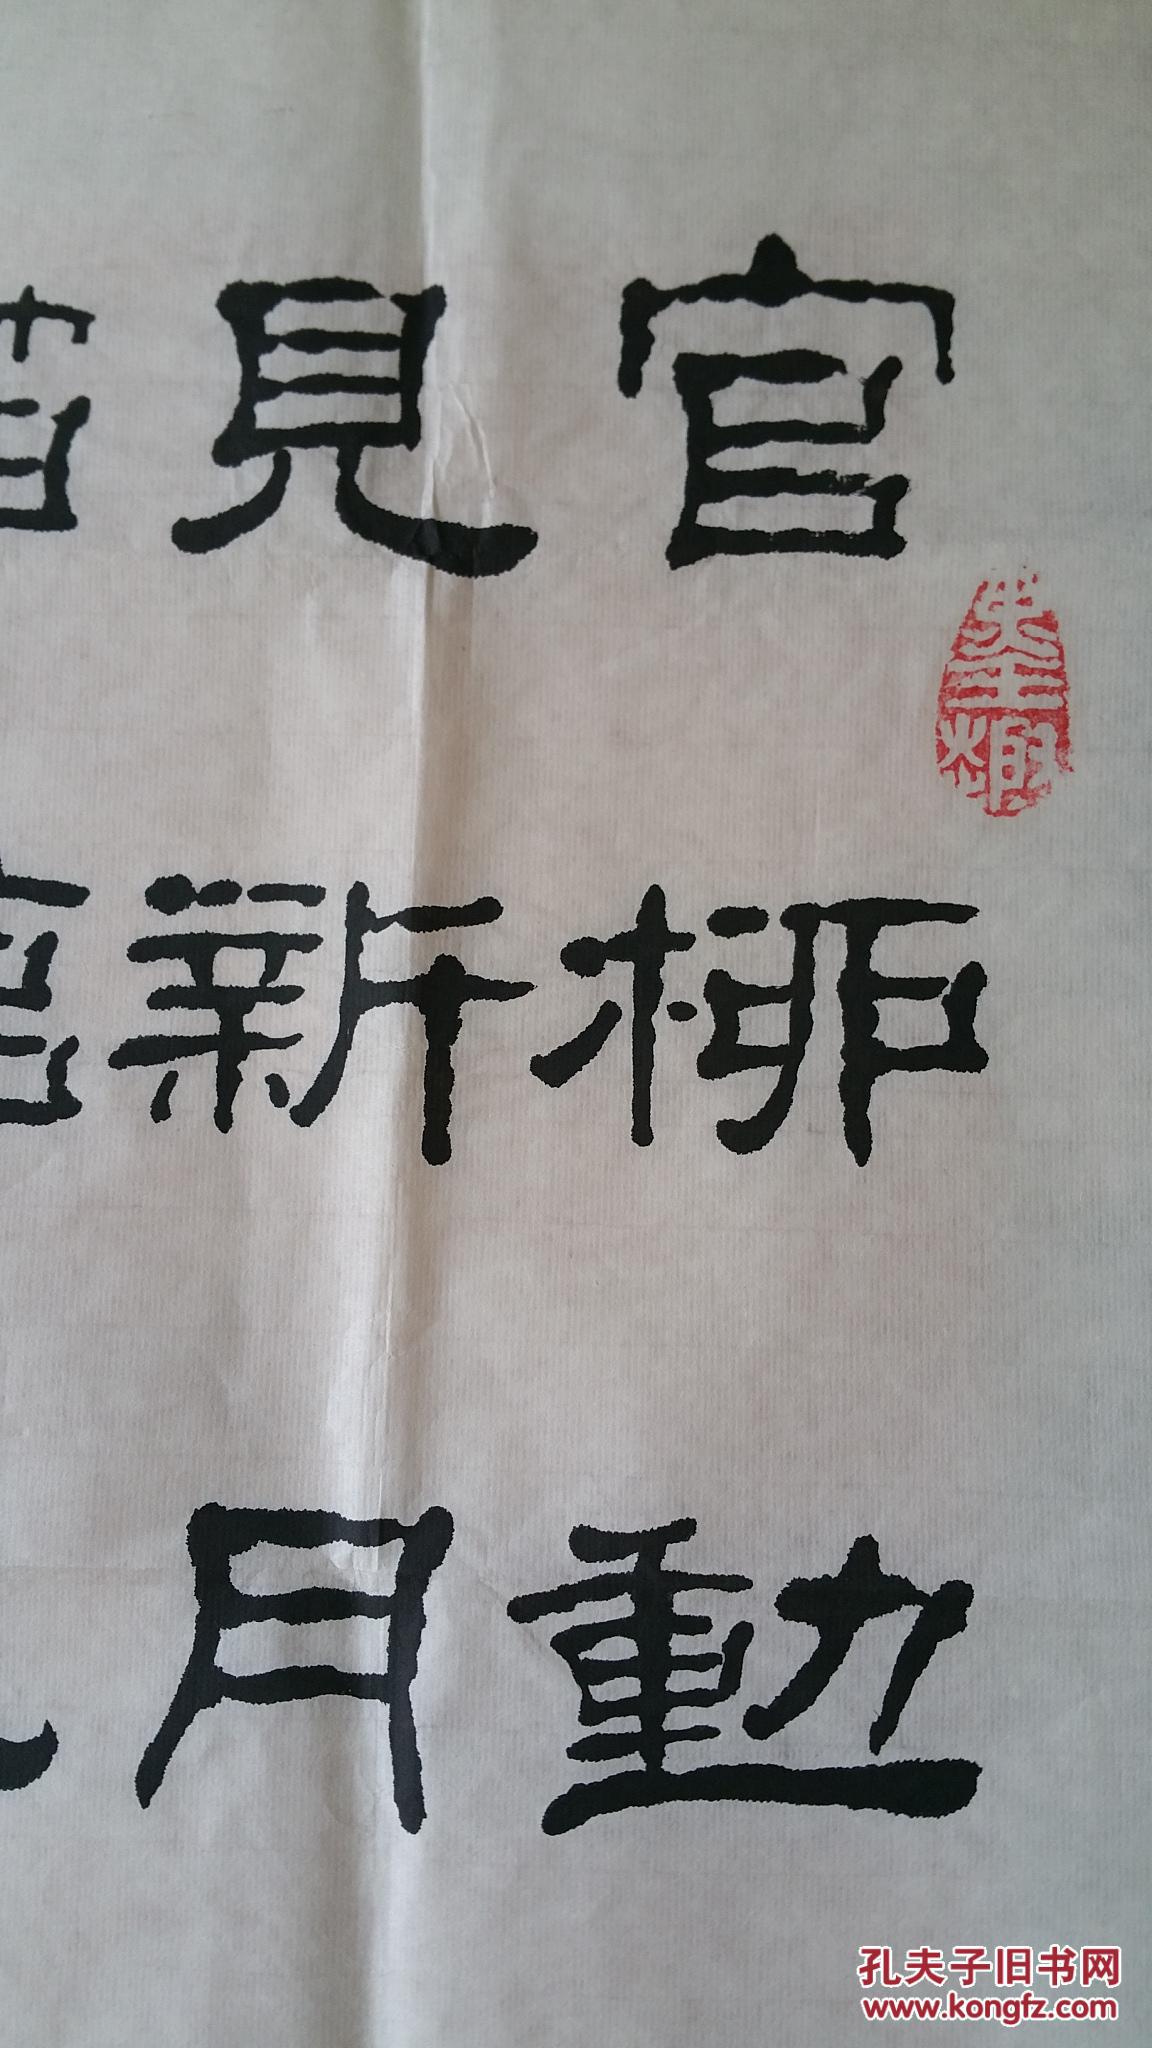 官柳動
見新月
孔夫子旧书网
www.kongfz.com